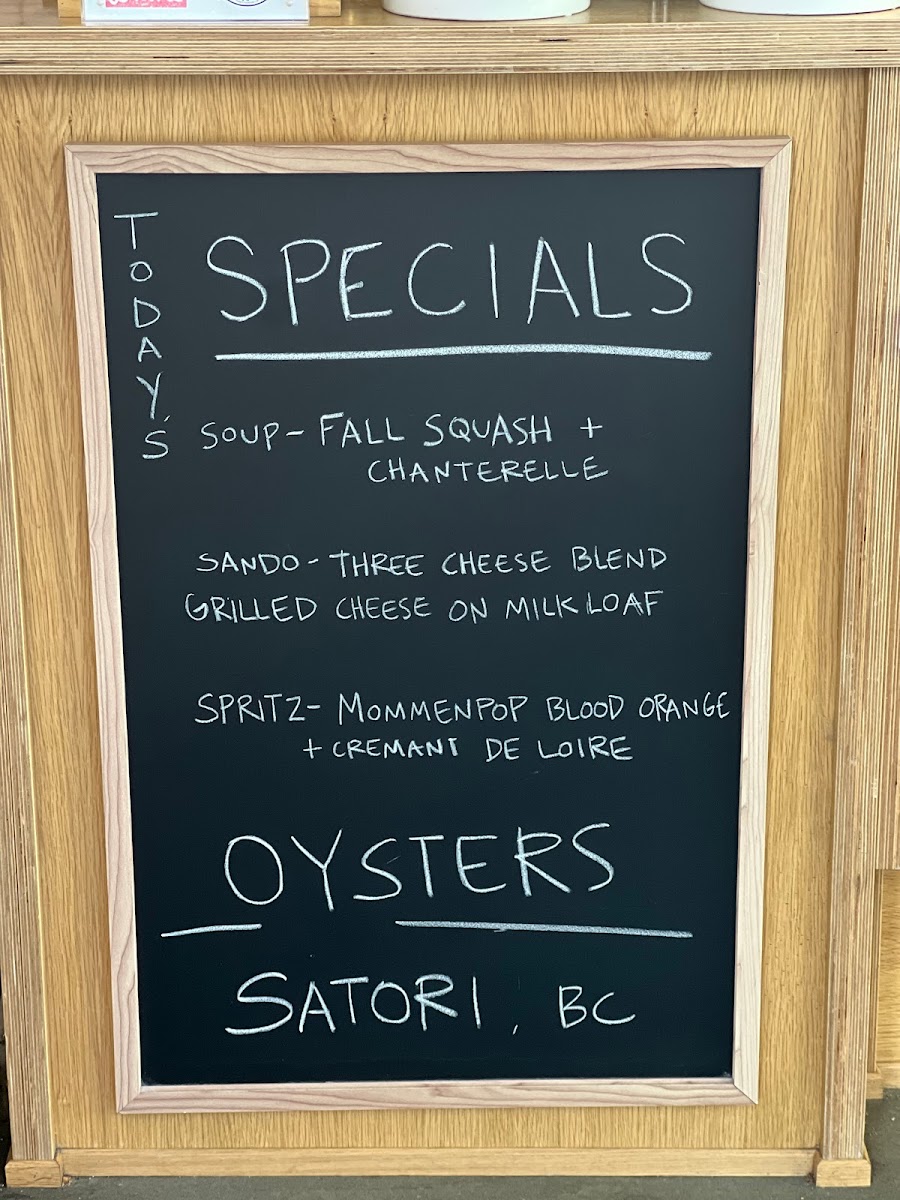 TODAY'S
SPECIALS
SOUP - FALL SQUASH +
CHANTERELLE
SANDO - THREE CHEESE BLEND
GRILLED CHEESE ON MILK LOAF
SPRITZ - MOMMENPOP BLOOD ORANGE
+ CREMANT DE LOIRE
OYSTERS
SATORI, BC